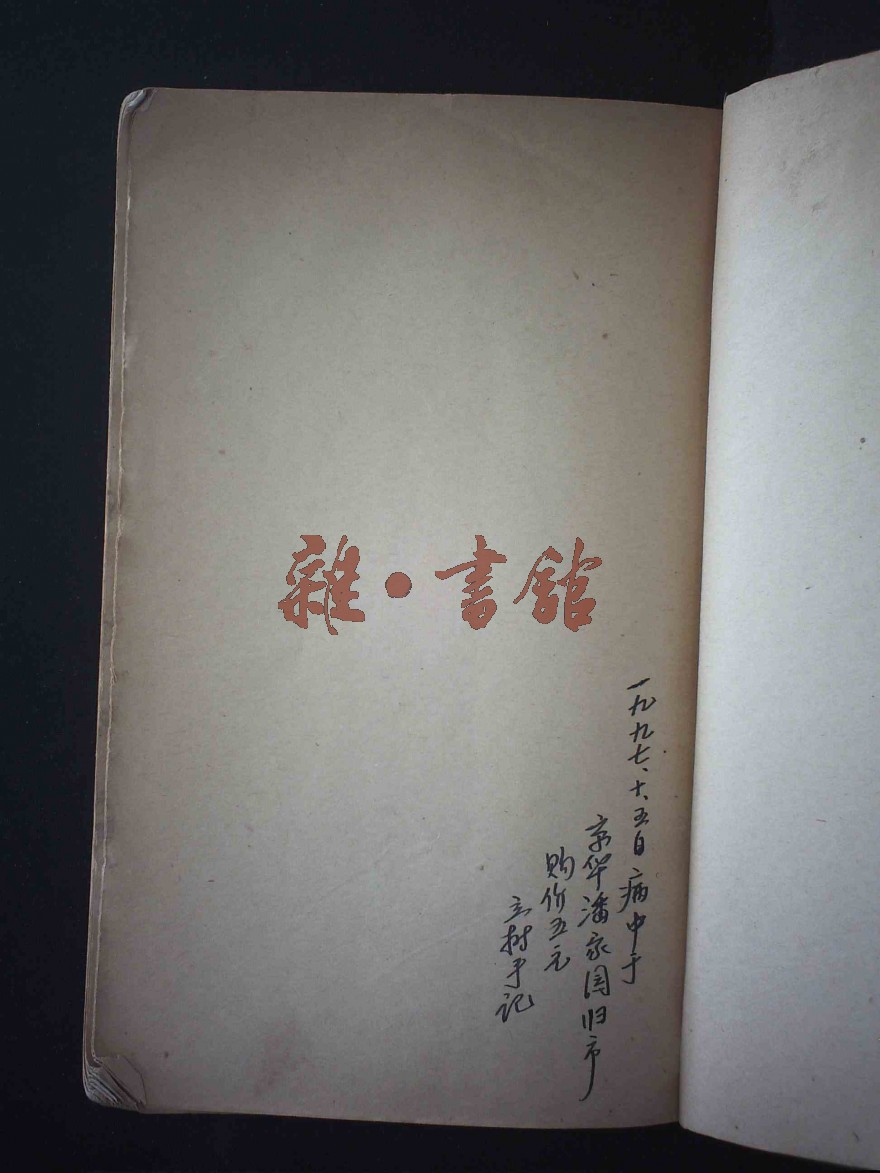 雜·書館
一九九七、十、五日病中于
京华潘家园旧市
购价五元
立树手记